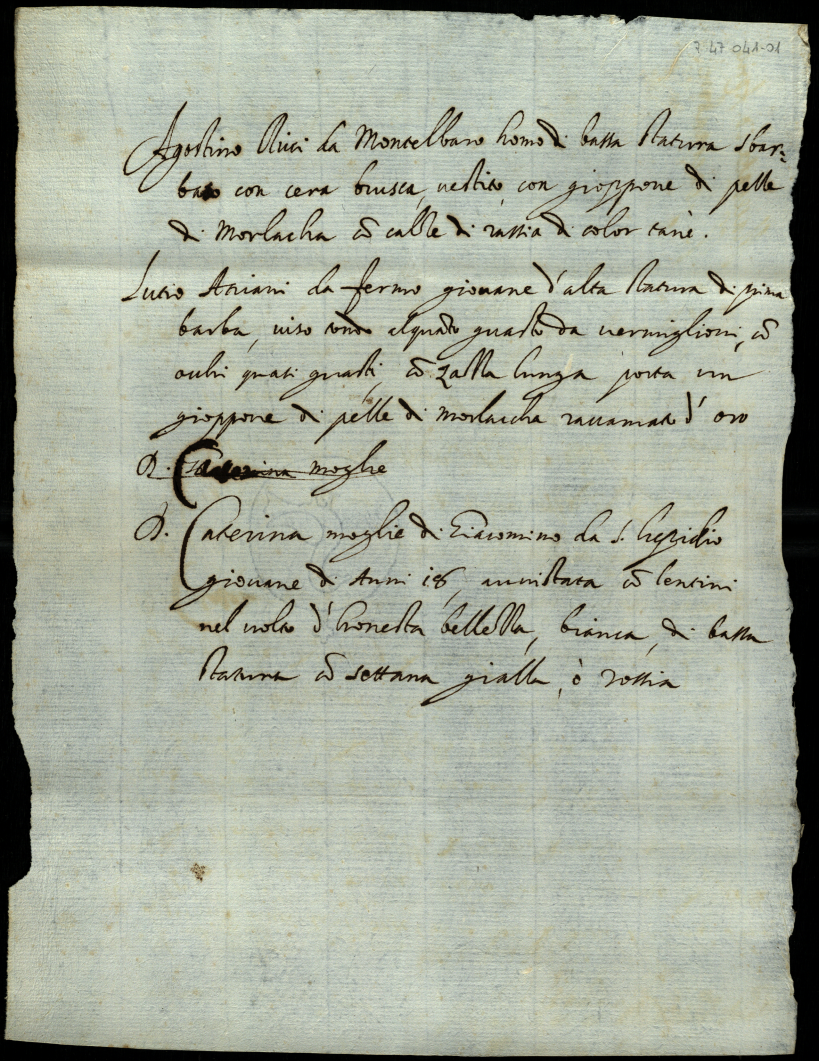 7 47 041-01
Agostino Ricci da Montelbaro homo di bassa statura sbar=
bato con cera brusca, vestito con gioppone di pelle
di Morlacha cõ calze di rassia di color tanè.
Lutio Atriani da fermo giovane d'alta statura di prima
barba, viso tondo alquãto guasto da vermiglioni, cõ
ochi quasi guasti, cõ zazza lunga porta un
gioppone di pelle di morlacha raccamato d'oro
D. Caterina moglie
D. Caterina moglie di Giacomino da S. Lepidio
giovane di Anni 18, cõ lentini
nel volto d'honesta bellezza, bianca, di bassa
statura cõ settana gialla, ò rossia